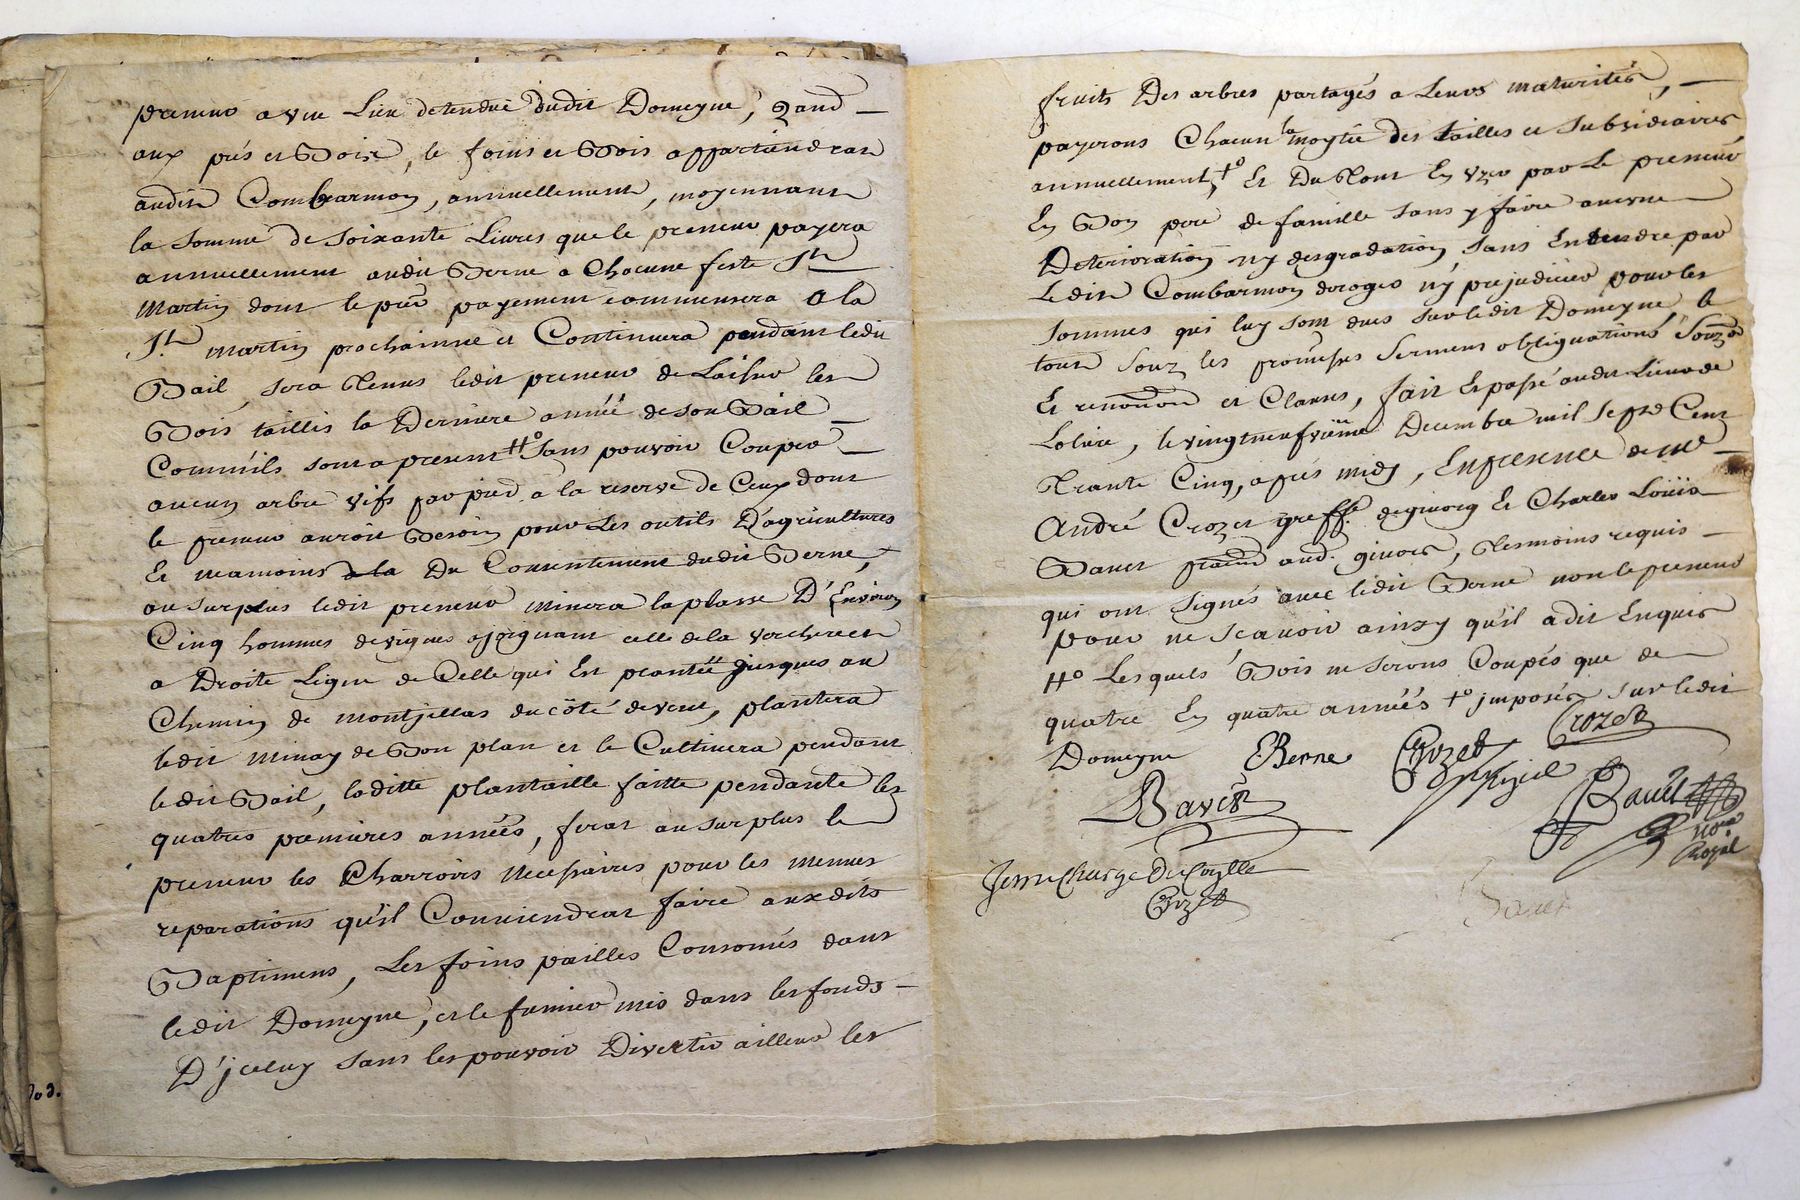 preneur a vue Lieu detendüe dudit Domeyne, quand
aux prés et Bois, le foins et Bois appartiendront
audit Combarmon, annuellement, moyennant
la somme de soixante Livres que le preneur payera
annuellement audit Berne a Chacune feste St
Martin dont le pier payement commensera a la
St martin prochainne et Continuera pendant ledit
Bail, sera tenus ledit preneur de Laisser les
Bois taillis la Derniere année de son Bail
Comm'ils sont a present #° sans pouvoir Couper
aucun arbre vifs par pied a la reserve de Ceux dont
le preneur auroit Besoin pour Les outils D'agricultures
Et neamoins a la Du Consentement dudit Berne,
au surplus ledit preneur minera la plasse D'Environ
Cinq hommes de vignes ajoignant celle de la vercherett
a Droite Ligne de Celle qui Est plantée jusques au
Chemin de montjellas du côté de vent, plantera
ledit minay de Bon plan et le Cultivera pendant
ledit Bail, laditte plantaille faitte pendante les
quatres premieres années, ferat au surplus le
preneur les Charroirs necessaires pour les menues
reparations qu'il Conviendrat faire auxdits
Baptimens, Les foins pailles Consomés dans
ledit Domeyne, et le fumier mis dans les fonds
D'jceluy sans les pouvoir Divertir ailleur les
fruits Des arbres partagés a Leurs maturités,
payerons Chacun la moytié des tailles et subsidiaires
annuellement, +° Et Du tout En Vzer par Le preneur
En Bon pere de famille sans y faire aucune
Deterioration ny desgradation sans Entendre par
Ledit Combarmon deroger n'y prejudicier pour les
sommes qui luy sont dues sur ledit Domeyne le
tout souz les promesses sermens obliguations souz on
Et renonon et Clauses, fait Et passé audit Lieu de
Loliere, le vingtneufvieme Decembre mil sept Cent
trante Cinq, apres midy, En presence de me
André Crozet greffr de givorg Et Charles Loüis
Bavet praticien aud. givors, tesmoins requis
qui ont signés avec ledit Berne non le preneur
pour ne scavoir ainsy qu'il a dit Enquis
#° Lesquels Bois ne serons Coupés que de
quatre En quatre années +° jmposés sur ledit
Domeyne Berne Crozet Crozet
Bavet Bavet
nore
Royal
Crozet
Bavet